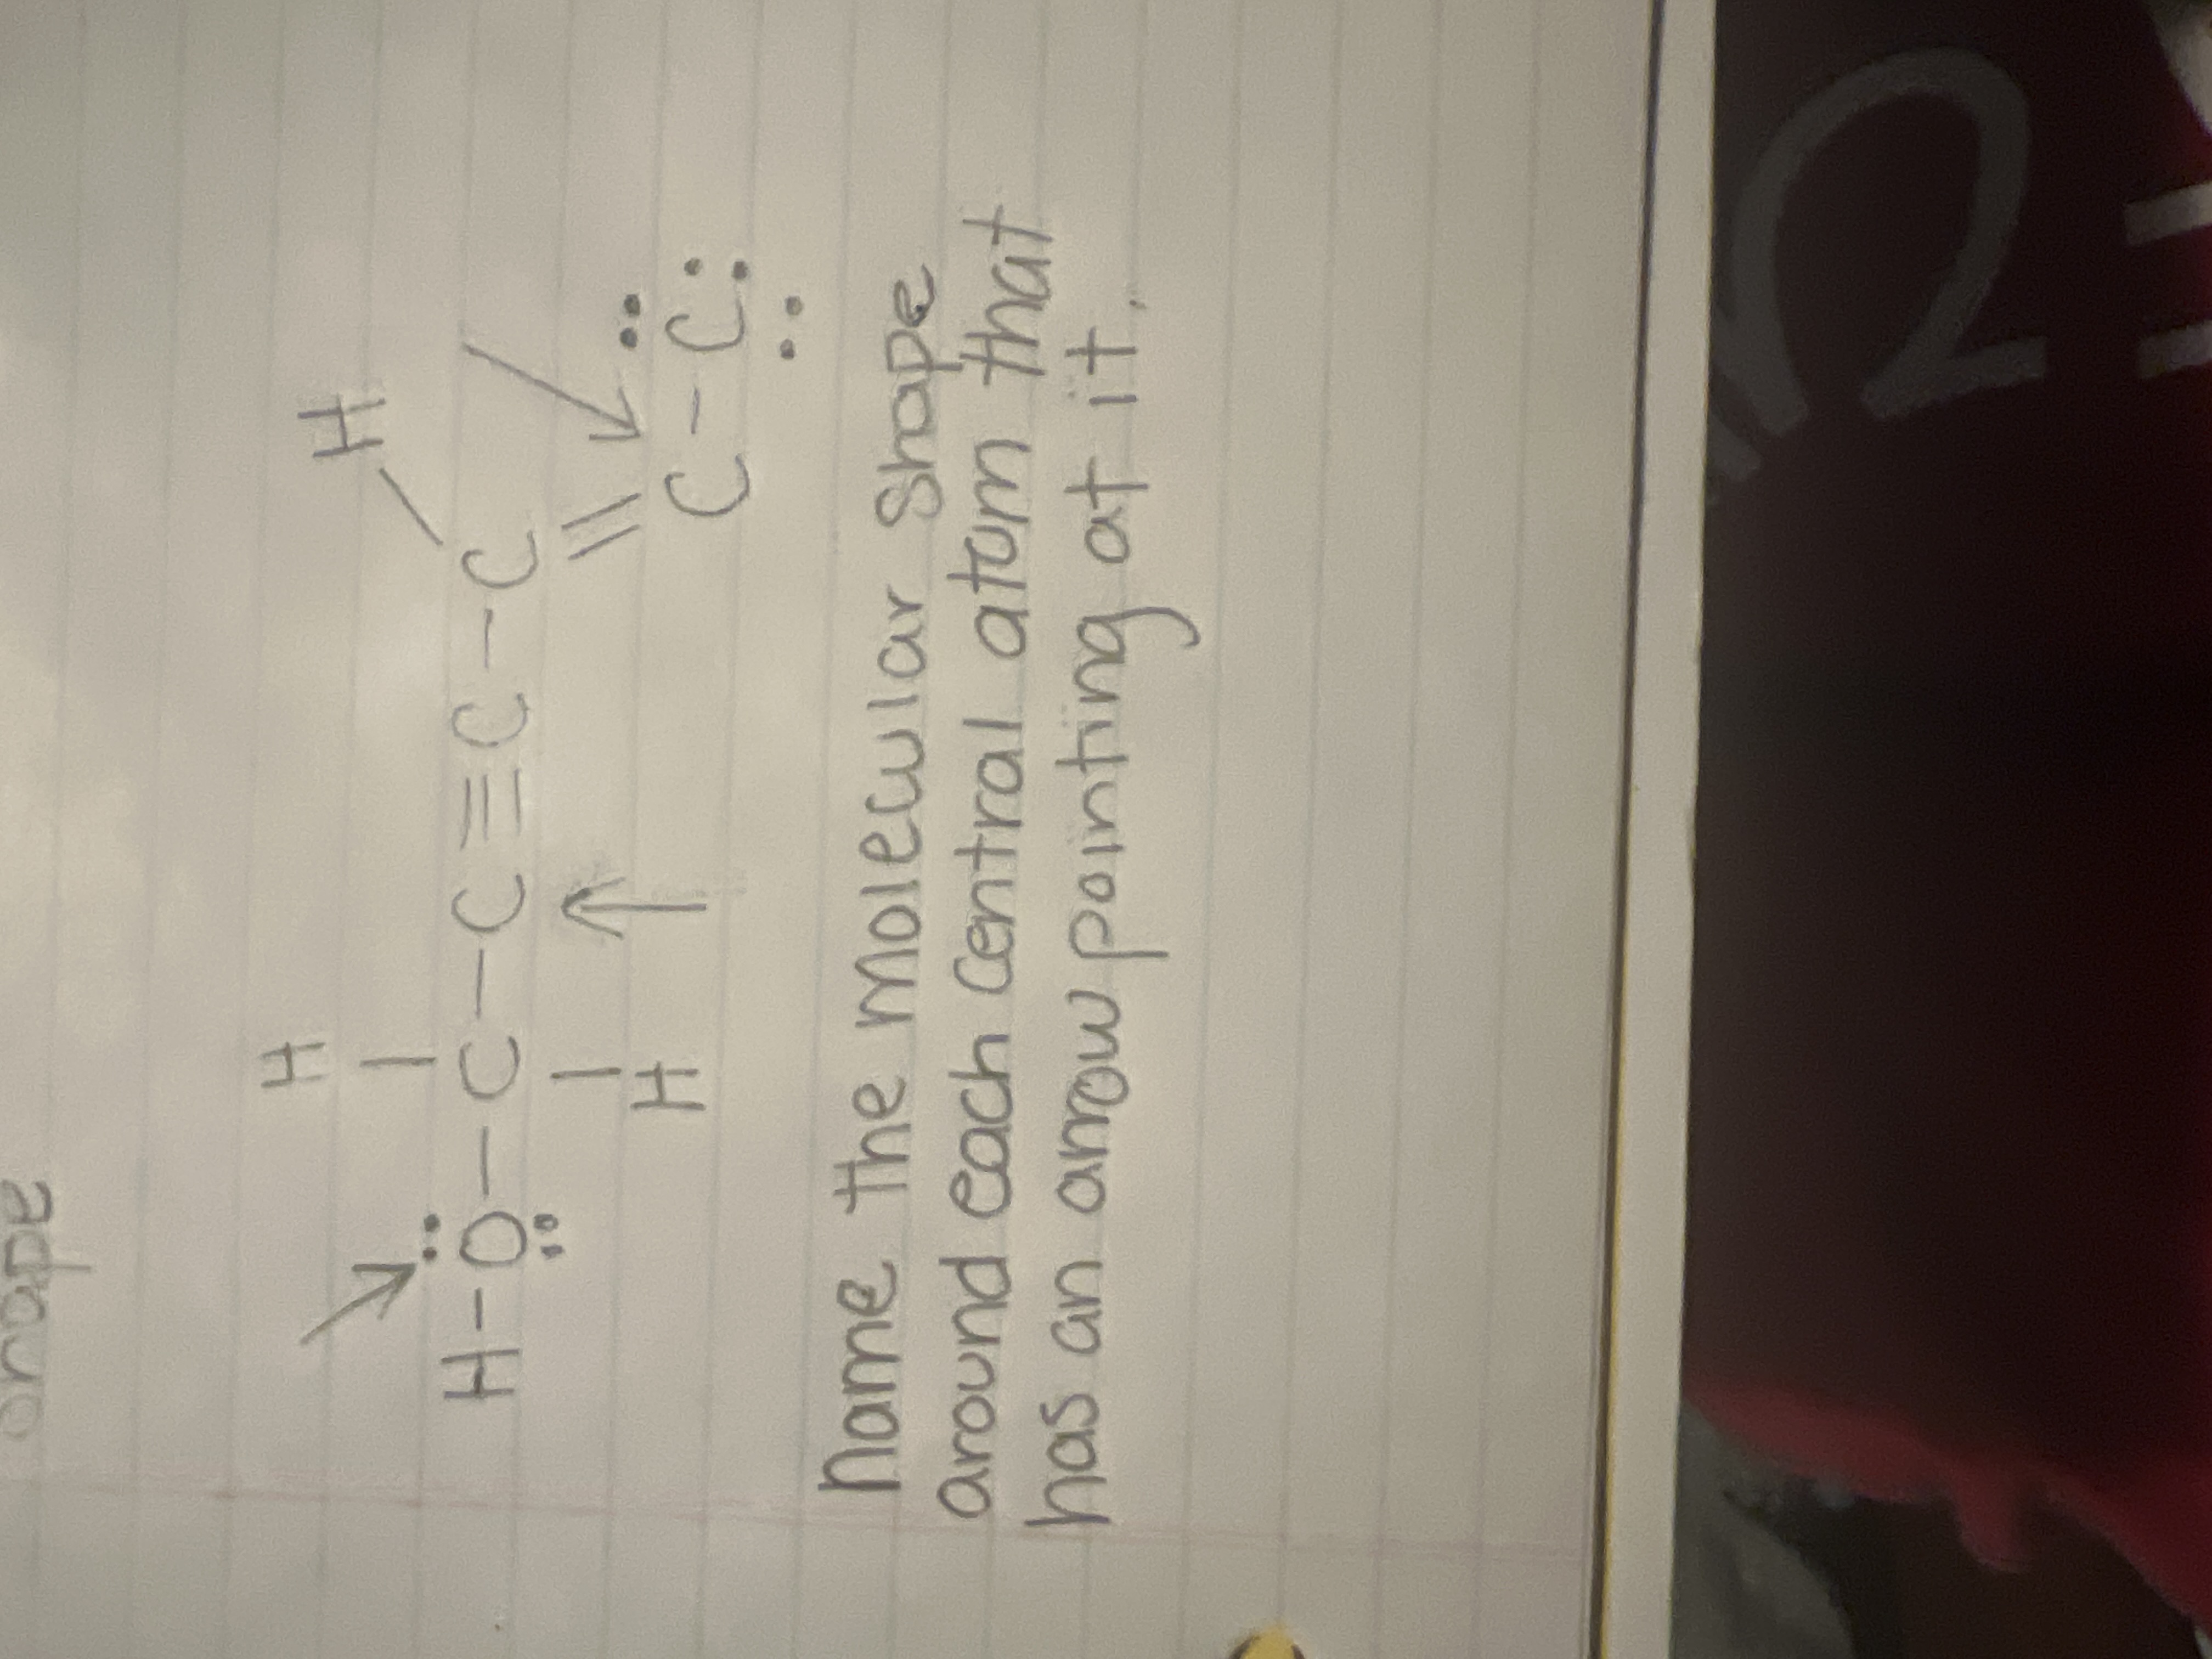 shape
H H
H-O-C-C≡C-C
H C-C
Name the molecular shape
around each central atom that
has an arrow pointing at it.